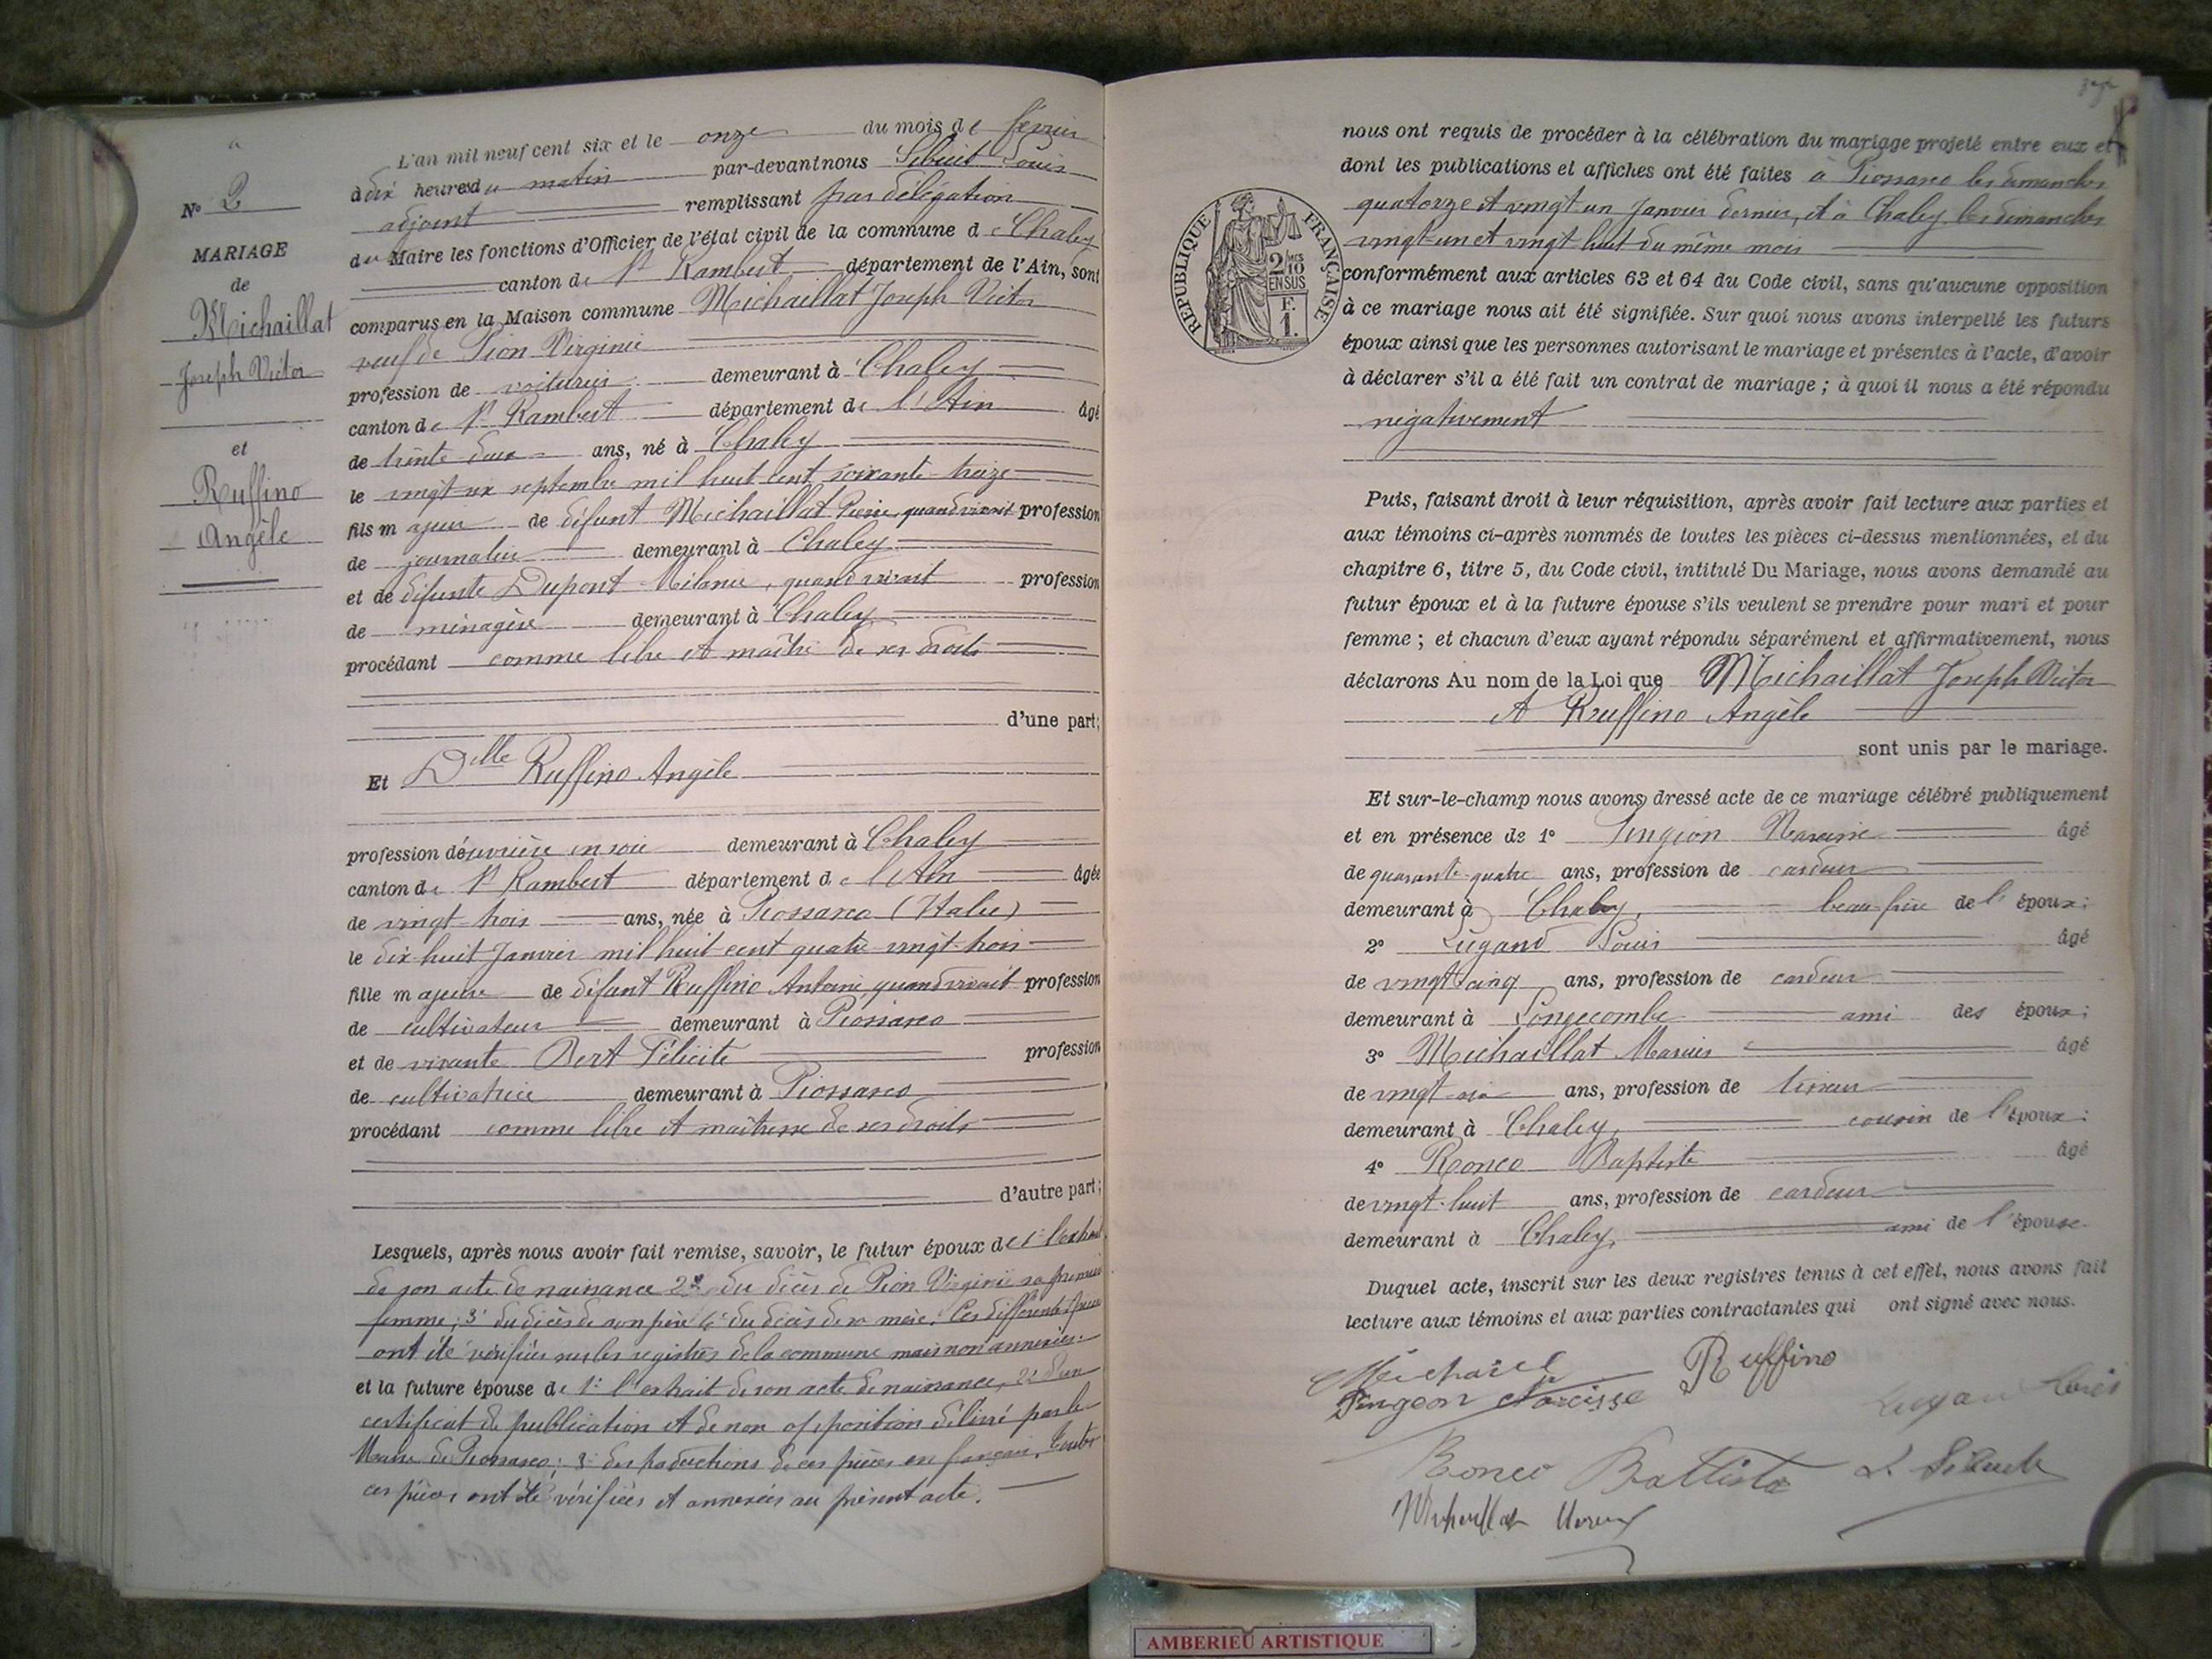 N° 2
MARIAGE
de
Michaillat
Joseph Victor
et
Ruffino
Angèle
L'an mil neuf cent six et le onze du mois de février
à dix heures du matin par-devant nous Sibuet Louis
adjoint remplissant par délégation
du Maire les fonctions d'Officier de l'état civil de la commune d Chaley
canton de St Rambert département de l'Ain, sont
comparus en la Maison commune Michaillat Joseph Victor
veuf de Pion Virginie
profession de voiturier demeurant à Chaley
canton de St Rambert département de l'Ain âgé
de trente deux ans, né à Chaley
le vingt six septembre mil huit cent soixante-treize
fils majeur de défunt Michaillat Pierre, quand vivait profession
de journalier demeurant à Chaley
et de défunte Dupont Mélanie, quand vivait profession
de ménagère demeurant à Chaley
procédant comme libre et maître de ses droits
d'une part;
Et Dlle Ruffino Angèle
profession d'ouvrière en soie demeurant à Chaley
canton de St Rambert département de l'Ain âgée
de vingt trois ans, née à Piossasco (Italie)
le dix huit Janvier mil huit cent quatre vingt-trois
fille majeure de défunt Ruffino Antoine, quand vivait profession
de cultivateur demeurant à Piossasco
et de vivante Bert Félicité profession
de cultivatrice demeurant à Piossasco
procédant comme libre et maîtresse de ses droits
d'autre part;
Lesquels, après nous avoir fait remise, savoir, le futur époux de 1° l'extrait
de son acte de naissance 2° du décès de Pion Virginie sa première
femme; 3° du décès de son père 4° du décès de sa mère. Ces différentes pièces
ont été vérifiées sur les registres de la commune mais non annexées.
et la future épouse de 1° l'extrait de son acte de naissance, 2° d'un
certificat de publication et de non opposition délivré par le
Maire de Piossasco; 3° des traductions de ces pièces en français. Toutes
ces pièces ont été vérifiées et annexées au présent acte.
nous ont requis de procéder à la célébration du mariage projeté entre eux et
dont les publications et affiches ont été faites à Piossasco les dimanches
quatorze et vingt un Janvier dernier, et à Chaley les dimanches
vingt-un et vingt huit du même mois
REPUBLIQUE FRANÇAISE
2/10 MES
EN SUS
F.
1.
conformément aux articles 63 et 64 du Code civil, sans qu'aucune opposition
à ce mariage nous ait été signifiée. Sur quoi nous avons interpellé les futurs
époux ainsi que les personnes autorisant le mariage et présentes à l'acte, d'avoir
à déclarer s'il a été fait un contrat de mariage ; à quoi il nous a été répondu
négativement
Puis, faisant droit à leur réquisition, après avoir fait lecture aux parties et
aux témoins ci-après nommés de toutes les pièces ci-dessus mentionnées, et du
chapitre 6, titre 5, du Code civil, intitulé Du Mariage, nous avons demandé au
futur époux et à la future épouse s'ils veulent se prendre pour mari et pour
femme ; et chacun d'eux ayant répondu séparément et affirmativement, nous
déclarons Au nom de la Loi que Michaillat Joseph Victor
et Ruffino Angèle
sont unis par le mariage.
Et sur-le-champ nous avons dressé acte de ce mariage célébré publiquement
et en présence de 1° Pingeon Narcisse âgé
de quarante-quatre ans, profession de cardeur
demeurant à Chaley, beau-frère de l'époux;
2° Lugand Louis âgé
de vingt cinq ans, profession de cardeur
demeurant à Longecombe ami des époux;
3° Michaillat Marius âgé
de vingt-six ans, profession de tisseur
demeurant à Chaley, cousin de l'époux;
4° Ronco Baptiste âgé
de vingt-huit ans, profession de cardeur
demeurant à Chaley, ami de l'épouse.
Duquel acte, inscrit sur les deux registres tenus à cet effet, nous avons fait
lecture aux témoins et aux parties contractantes qui ont signé avec nous.
Ruffino
Pingeon Narcisse
Ronco Battista
AMBERIEU ARTISTIQUE